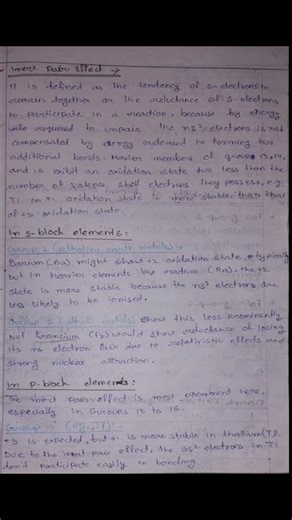 Inert Pair Effect →
It is defined as the tendency of s-electrons to
remain together or the reluctance of s-electrons
to participate in a reaction, because by energy
required to unpair the ns² electrons is not
compensated by energy released in forming two
additional bonds. Heavier members of groups 13, 14,
and is exibit an oxidation state two less than the
number of valence shell electrons they possess, e.g.
Tl in +1 oxidation state is more stable than that
of +3 oxidation state.
In s-block elements:
Group 2 (alkaline earth metals) -
Barium (Ba) might show +2 oxidation state typically
but in heavier elements like radium (Ra), the +2
state is more stable because the ns² electrons are
less likely to be ionised.
metals) show this less prominently,
but francium (Fr) would show reluctance of losing
its ns electron due to relativistic effects and
strong nuclear attraction.
In p-block elements:
The inert pair effect is most prominent here,
especially in Groups 13 to 16.
(e.g., Tl):-
+3 is expected, but +1 is more stable in thallium (Tl).
Due to the inert pair effect, the 6s² electrons in Tl
don't participate easily in bonding